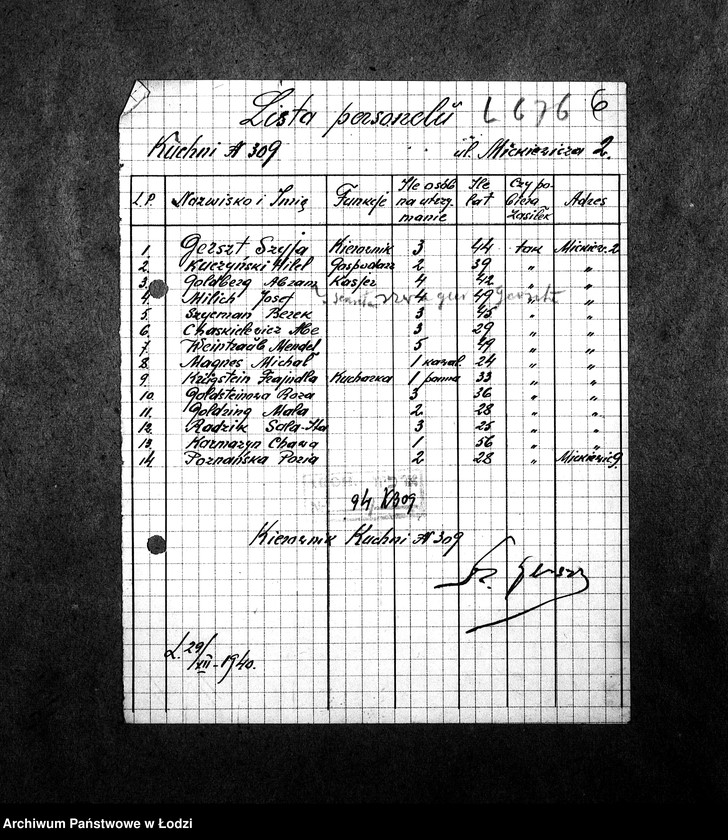 Lista personelu L 676 6
Kuchni № 309 ul. Mickiewicza 2.
L.P. Nazwisko i Imię Funkcje Ile osób na utrzymanie Ile lat Czy pobiera zasiłek Adres
1. Gerszt Szyja Kierownik 3 44 tak Mickiew. 2
2. Kuczyński Hilel Gospodarz 2 39 " "
3. Goldberg Abram Kasjer 4 42 " "
4. Milich Josef 4 49 " "
5. Szyeman Berek 3 45 " "
6. Chaskielewicz Abe 3 29 " "
7. Weintraub Mendel 5 49 " "
8. Magnes Michał 1 kawal. 24 " "
9. Frajndla Kucharka 1 panna 33 " "
10. Goldsteinowa Roza 3 36 " "
11. Goldring Mala 2 28 " "
12. Radzik Sala-Ita 3 25 " "
13. Karmazyn Chawa 1 56 " "
14 Poznańska Pozia 2 28 " Mickiewic 9.
94 K309
Kierownik Kuchni № 309
Sz. Gerszt
Ł. 29/XII-1940.
Archiwum Państwowe w Łodzi